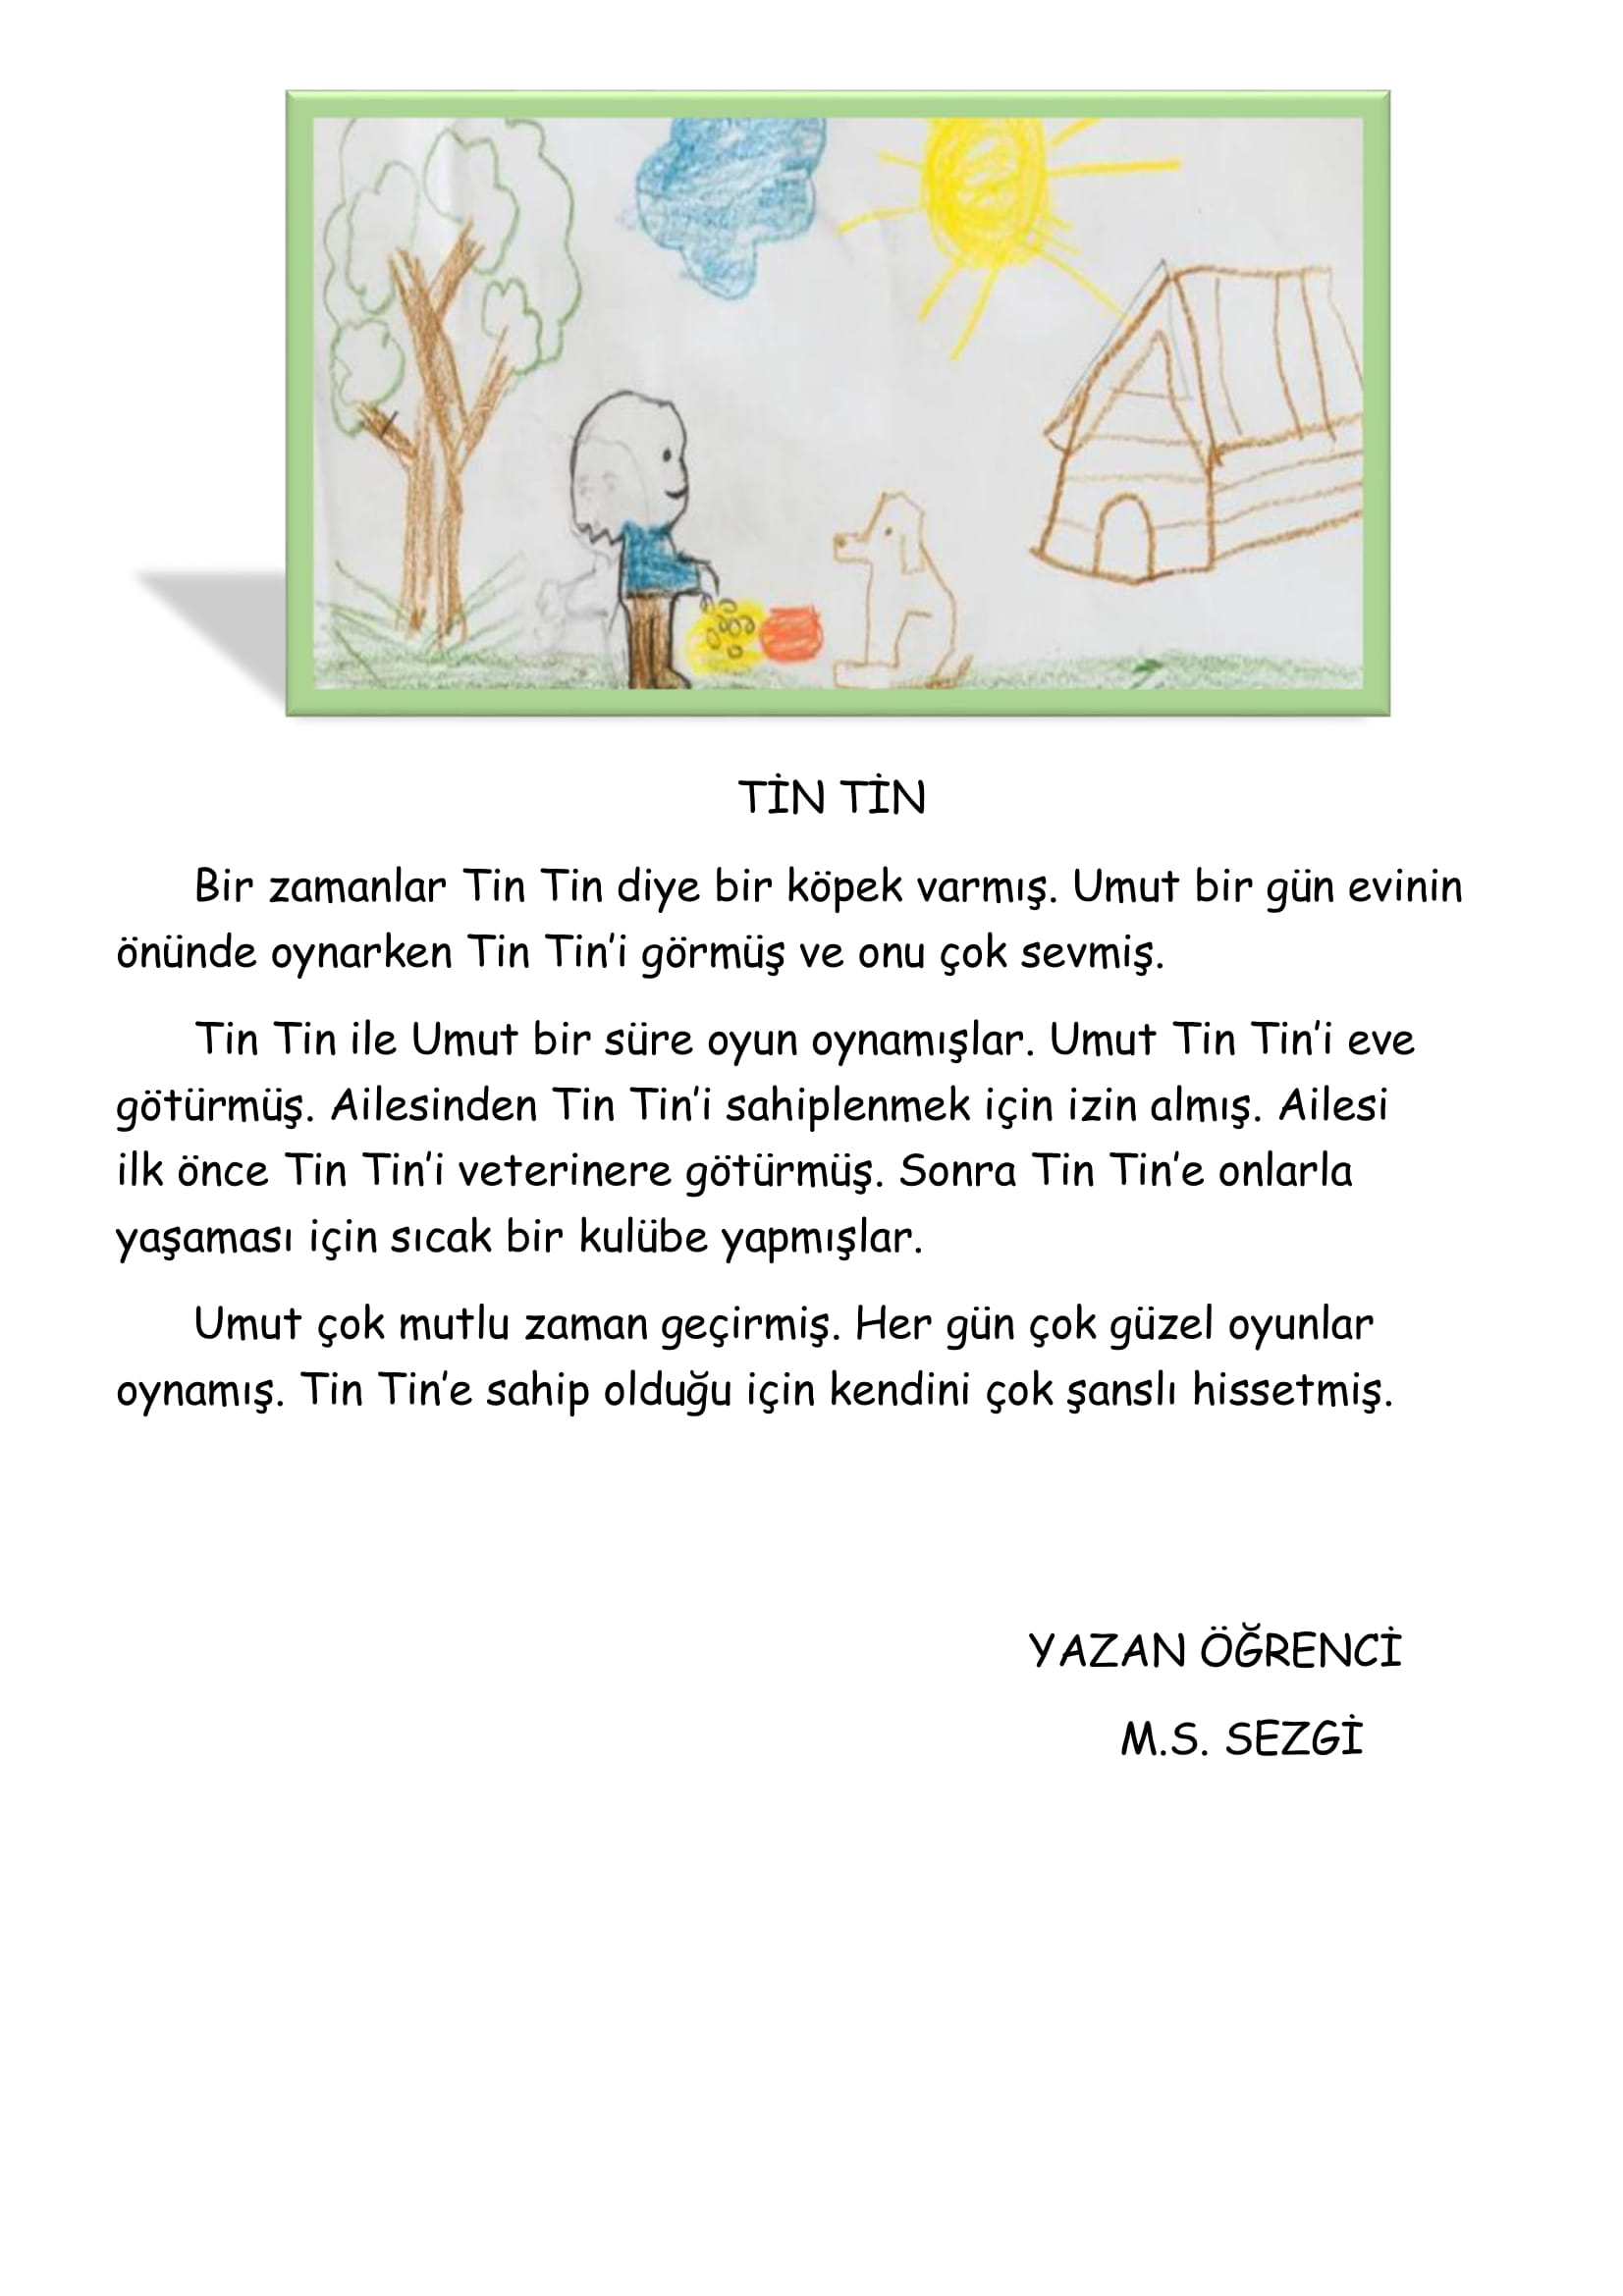 TİN TİN
Bir zamanlar Tin Tin diye bir köpek varmış. Umut bir gün evinin
önünde oynarken Tin Tin’i görmüş ve onu çok sevmiş.
Tin Tin ile Umut bir süre oyun oynamışlar. Umut Tin Tin’i eve
götürmüş. Ailesinden Tin Tin’i sahiplenmek için izin almış. Ailesi
ilk önce Tin Tin’i veterinere götürmüş. Sonra Tin Tin’e onlarla
yaşaması için sıcak bir kulübe yapmışlar.
Umut çok mutlu zaman geçirmiş. Her gün çok güzel oyunlar
oynamış. Tin Tin’e sahip olduğu için kendini çok şanslı hissetmiş.
YAZAN ÖĞRENCİ
M.S. SEZGİ